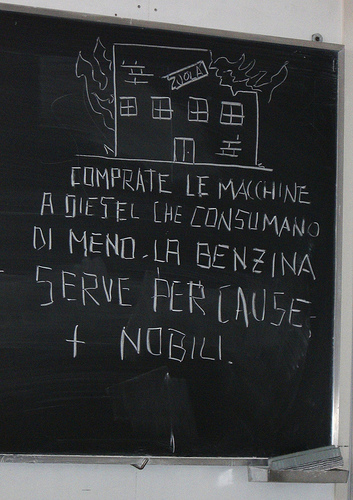 SUOLA
COMPRATE LE MACCHINE
A DIESEL CHE CONSUMANO
DI MENO. LA BENZINA
SERVE PER CAUSE
+ NOBILI.